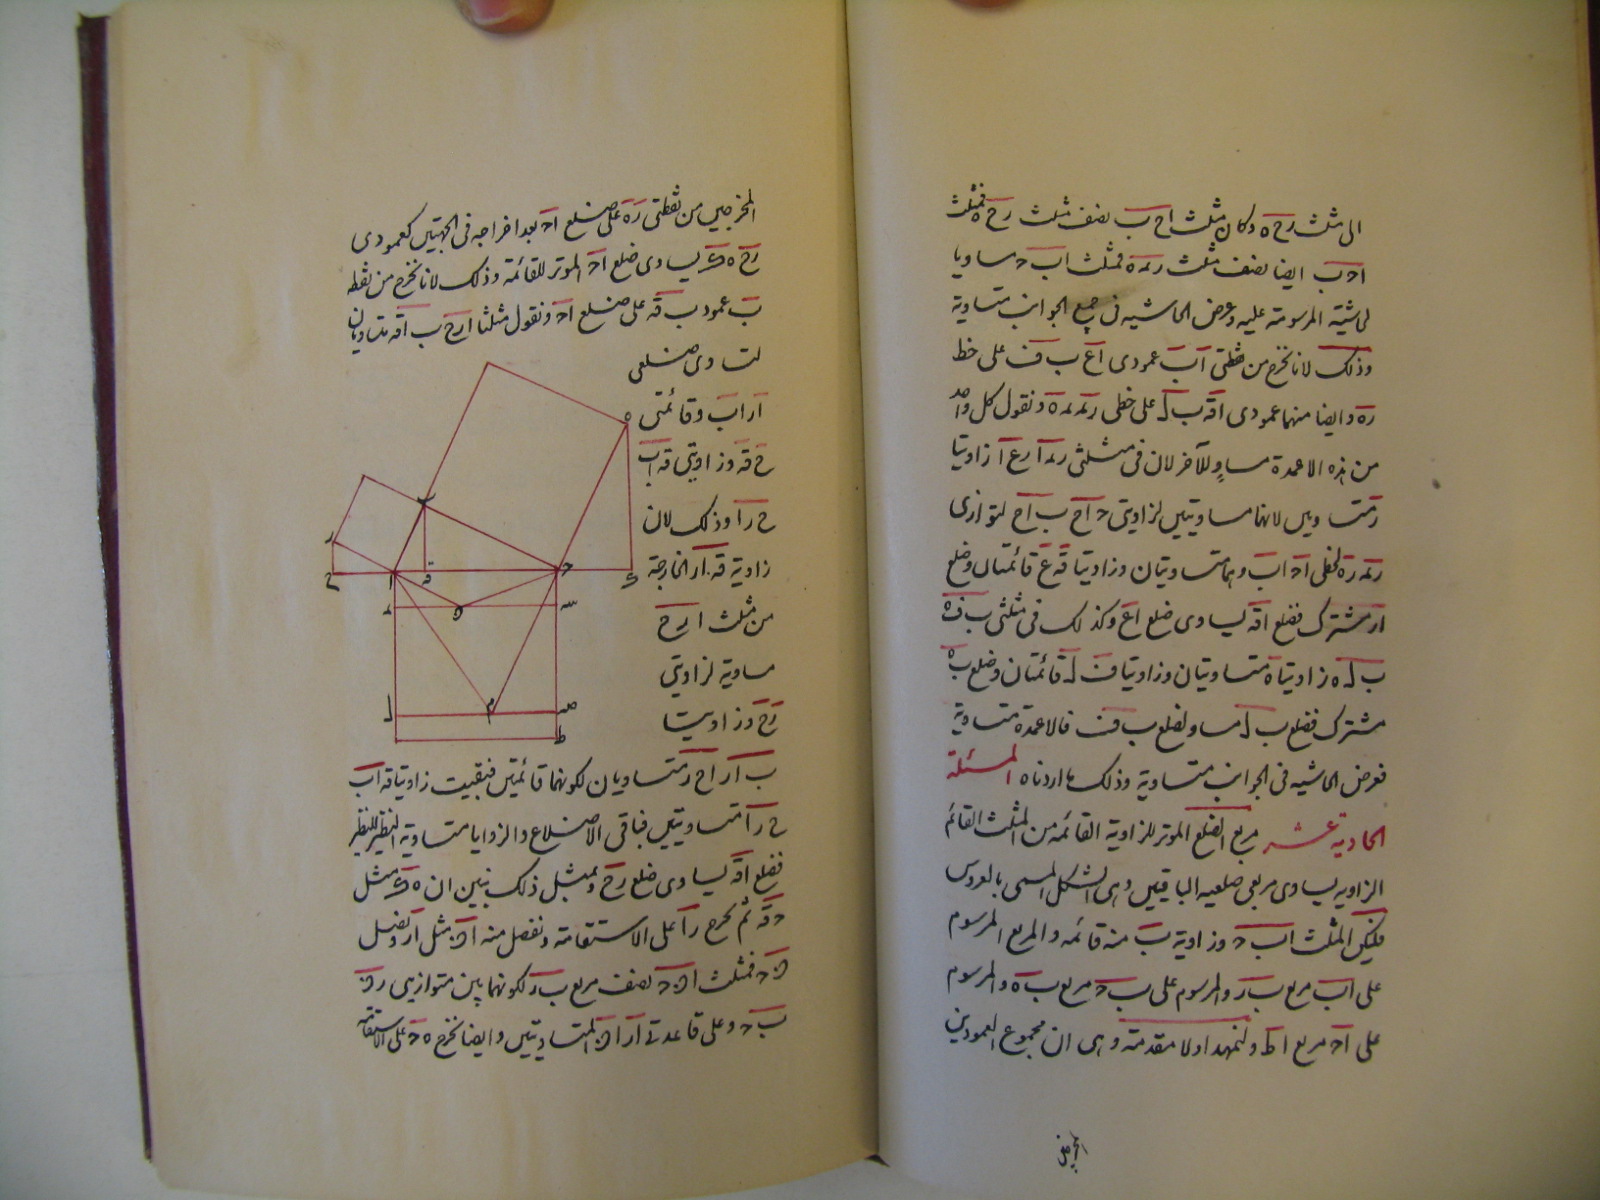 الى مثلث رح ه وكان مثلث اح ب نصف مثلث رح ه فمثلث
اح ب ايضا نصف مثلث رمه ه فمثلث اب ح مساويا
لحاشيته المرسومة عليه وعرض الحاشيه في جميع الجوانب متساوية
وذلك لانا نخرج من نقطتي اب عمودى اع ب ف على خط
ره وايضا منهما عمودى اق ب ل على خطى ونقول كل واحد
من هذه الاعمدة مساو للآخر لان في مثلثى زاويتا
متساويين لانهما مساويتين لزاويتى ح اح ب اح لتوازى
لخطى اح اب وهما متساويتان وزاويتا ق ع قائمتان وضلع
ار مشترك فضلع اق يساوى ضلع اع وكذلك في مثلثى ب ف ه
ب ل ه زاويتا ه متساويتان وزاويتا ف ل قائمتان وضلع ب ه
مشترك فضلع ب ل مساو لضلع ب ف فالاعمدة متساوية
فعرض الحاشيه في الجوانب متساوية وذلك ما اردناه المسئلة
الحادية عشر مربع الضلع الموتر للزاوية القائمة من المثلث القائم
الزاويه يساوى مربعى ضلعيه الباقيين وهى الشكل المسمى بالعروس
فليكن المثلث اب ح وزاوية ب منه قائمه والمربع المرسوم
على اب مربع ب ر والمرسوم على ب ح مربع ب ه والمرسوم
على اح مربع اط ولنمهد اولا مقدمة وهى ان مجموع العمودين
المخرجين
المخرجين من نقطتى ر ه على ضلع اح بعد اخراجه في الجهتين كعمودى
رح ه ى يساوى ضلع اح الموتر للقائمة وذلك لانا نخرج من نقطة
ب عمود ب ق على ضلع اح ونقول مثلثا ارح ب اق متساويان
لتساوى ضلعى
ار اب وقائمتى
ح ق وزاويتى ق اب
ح ر ا وذلك لان
زاوية ق ار الخارجة
من مثلث ارح
مساوية لزاويتى
رح وزاويتا
ب ار اح ر متساويان لكونهما قائمتين فبقيت زاويتا ق اب
ح ر ا متساويتين فباقى الاضلاع والزوايا متساوية النظير للنظير
فضلع اق يساوى ضلع رح وبمثل ذلك نبين ان ه ى مثل
ح ق ثم نخرج ر ا على الاستقامة ونفصل منه ان مثل ار ونصل
ن ح فمثلث ان ح نصف مربع ب ر لكونهما بين متوازيى رن
ب ح وعلى قاعدتى ار ان المتساويتين وايضا نخرج ه ح على الاستقامة
ه
ب
ر
ح
ا
ق
ح
ى
ن
س
ل
م
ص
ط